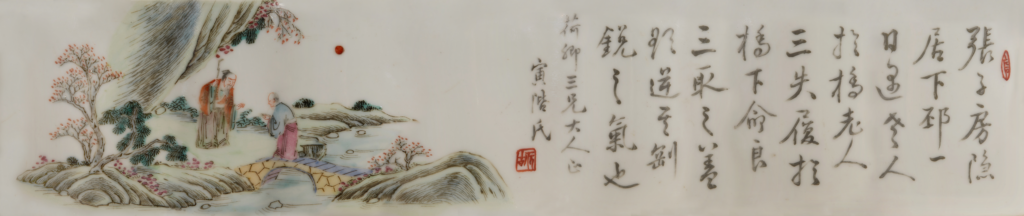 張子房隐
居下邳一
日遇老人
於橋老人
三失履於
橋下命良
三取之蓋
欲逆其剛
銳之氣也
荷卿三兄大人正
寅階氏